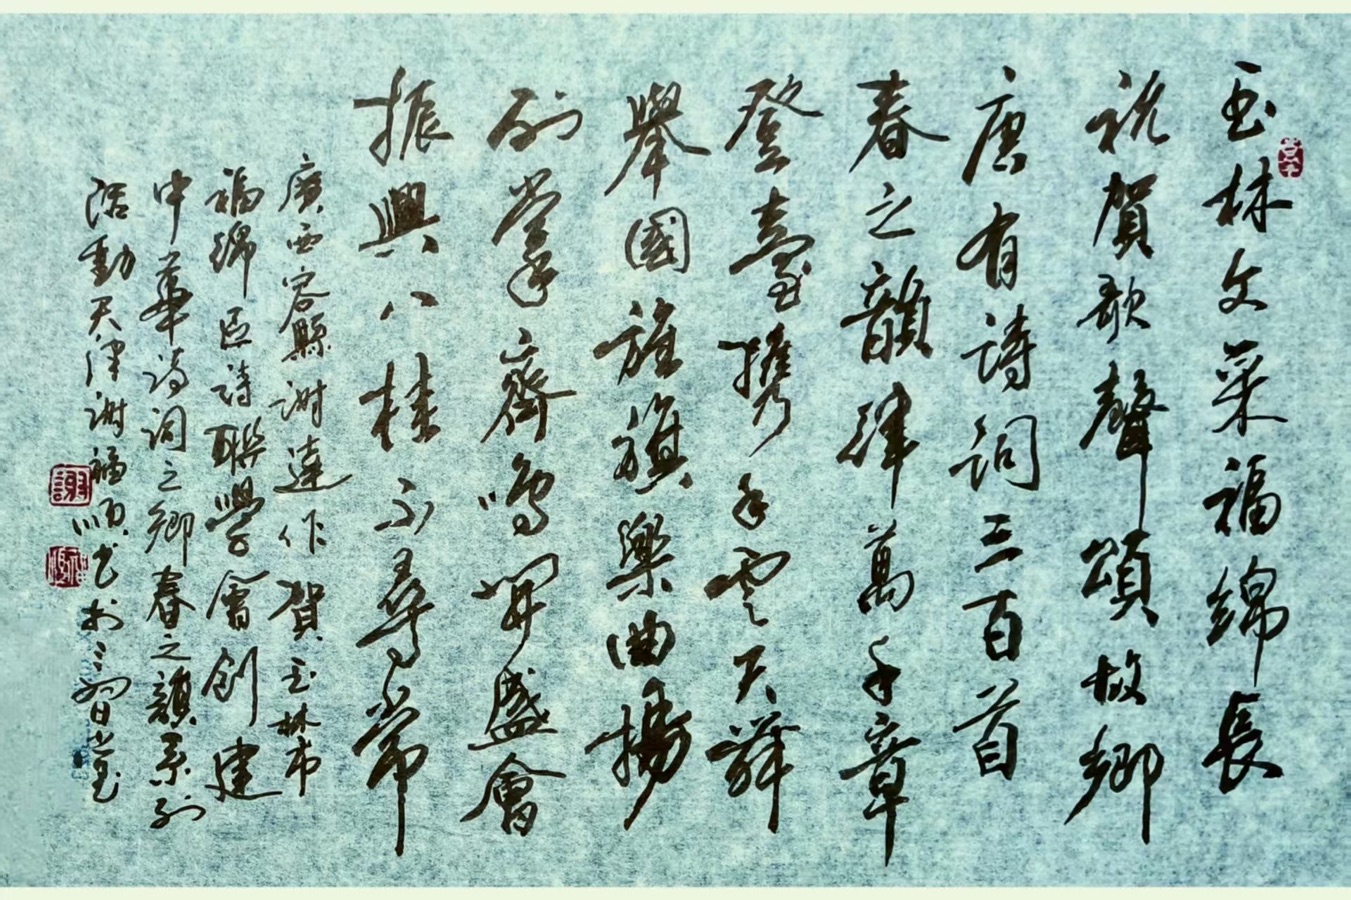 玉林文采福綿長
祝賀歌聲頌故鄉
唐有詩詞三百首
春之韻律萬千章
登臺攜手雲天舞
舉國旌旗樂曲揚
列掌齊鳴開盛會
振興八桂不尋常
廣西容縣謝達作賀玉林市
福綿區詩聯學會創建
中華詩詞之鄉春之韻系列
活動天津謝福順书於三習堂
謝